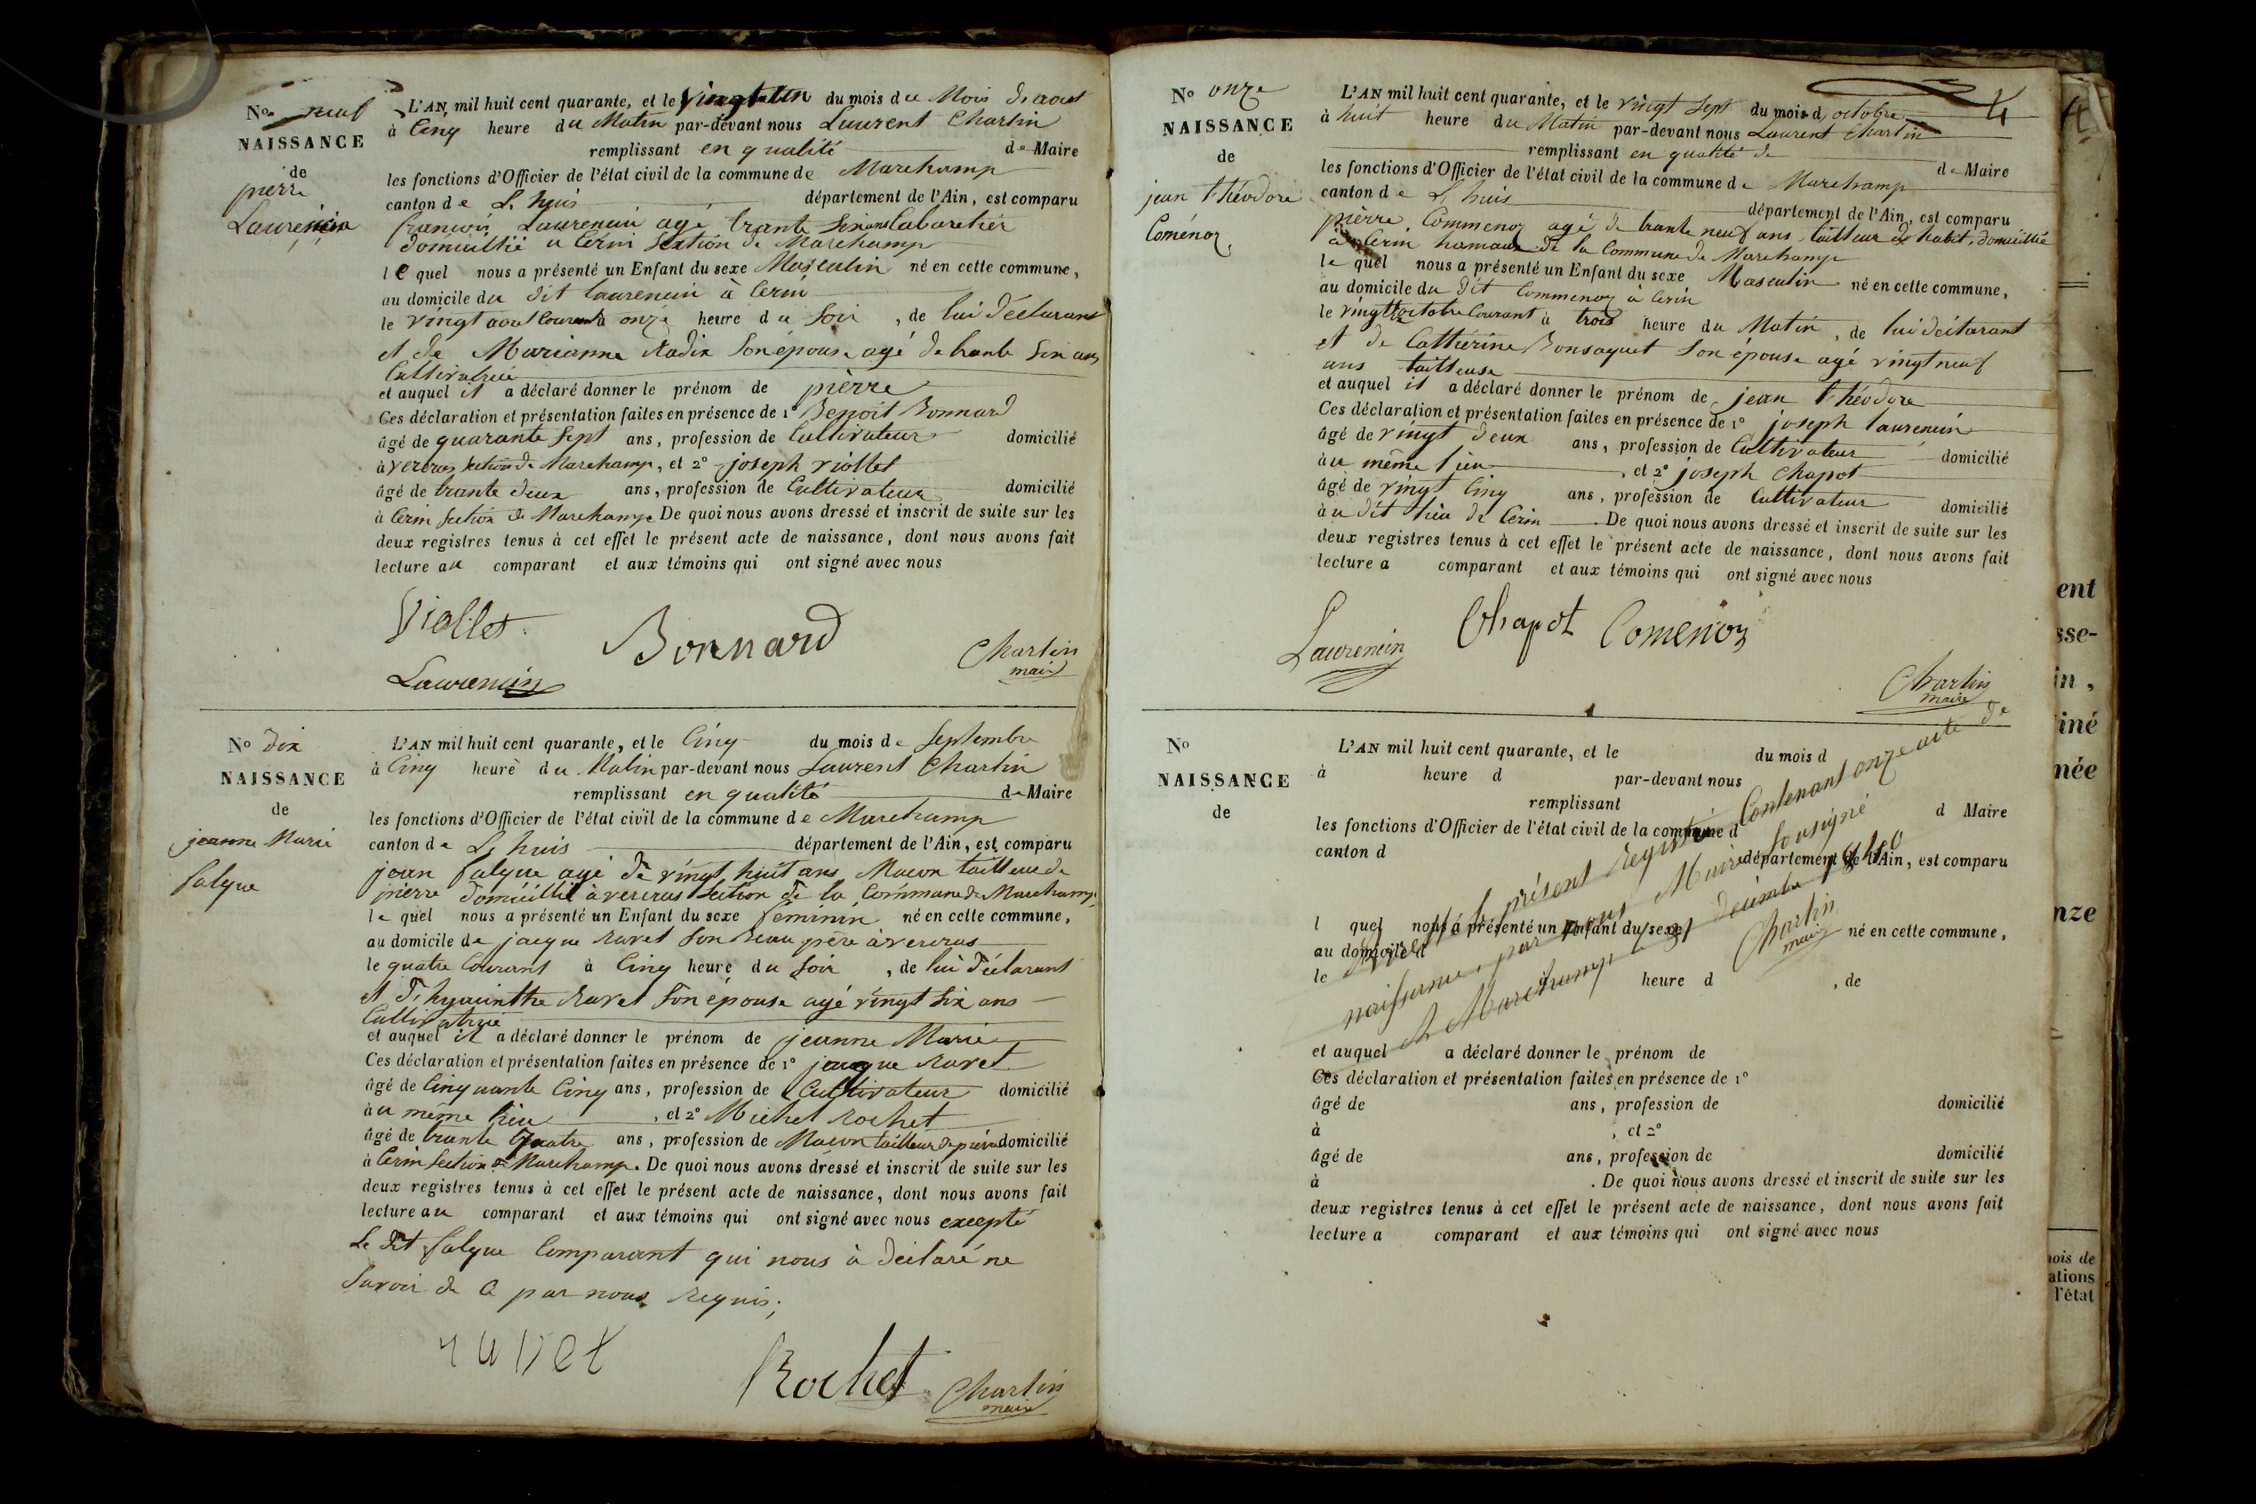 No neuf
NAISSANCE
de
pierre
Laurencin
L'AN mil huit cent quarante, et le vingt un du mois du Mois d'aout
à Cinq heure du Matin par-devant nous Laurent Chartin
remplissant en qualité de Maire
les fonctions d'Officier de l'état civil de la commune de Marchamp
canton de L'huis département de l'Ain, est comparu
françois Laurencin agé trante six ans Cabaretier
domicillié a Cerin Section de Marchamp
le quel nous a présenté un Enfant du sexe Masculin né en cette commune,
au domicile du dit Laurencin à Cerin
le vingt aout Courant à onze heure du Soir, de lui Déclarant
et de Marianne Radix Son épouse agé de trante Six ans
Cultivatrice
et auquel il a déclaré donner le prénom de pièrre
Ces déclaration et présentation faites en présence de 1º Benoit Bonnard
âgé de quarante Sept ans, profession de Cultivateur domicilié
à vercras Section de Marchamp, et 2º joseph viollet
âgé de trante deux ans, profession de Cultivateur domicilié
à Cerin Section de Marchamp De quoi nous avons dressé et inscrit de suite sur les
deux registres tenus à cet effet le présent acte de naissance, dont nous avons fait
lecture au comparant et aux témoins qui ont signé avec nous
Viollet
Bonnard
Laurencin
Chartin
maire
No dix
NAISSANCE
de
jeanne Marie
falque
L'AN mil huit cent quarante, et le Cinq du mois de Septembre
à Cinq heure du Matin par-devant nous Laurent Chartin
remplissant en qualité de Maire
les fonctions d'Officier de l'état civil de la commune de Marchamp
canton de L'huis département de l'Ain, est comparu
jean falque agé de vingt huit ans Macon tailleur de
pierre domicillié à vercras Section de la Commune de Marchamp
le quel nous a présenté un Enfant du sexe féminin né en cette commune,
au domicile de jacque Ravet Son Beau père à vercras
le quatre Courant à Cinq heure du Soir, de lui Déclarant
et d'hyacinthe Ravet Son épouse agé vingt Six ans
Cultivatrice
et auquel il a déclaré donner le prénom de jeanne Marie
Ces déclaration et présentation faites en présence de 1º jacque Ravet
âgé de Cinquante Cinq ans, profession de Cultivateur domicilié
à u même lieu, et 2º Michel Rochet
âgé de trante quatre ans, profession de Macon tailleur de pierre domicilié
à Cerin Section de Marchamp. De quoi nous avons dressé et inscrit de suite sur les
deux registres tenus à cet effet le présent acte de naissance, dont nous avons fait
lecture au comparant et aux témoins qui ont signé avec nous excepté
Le dit falque Comparant qui nous à déclaré ne
Savoir de Ce par nous Requis;
ravet
Rochet
Chartin
maire
4
No onze
NAISSANCE
de
jean théodore
Coménoz
L'AN mil huit cent quarante, et le vingt Sept du mois d'octobre
à huit heure du Matin par-devant nous Laurent Chartin
remplissant en qualité de de Maire
les fonctions d'Officier de l'état civil de la commune de Marchamp
canton de L'huis département de l'Ain, est comparu
pièrre Commenoz agé de trante neuf ans tailleur de habit, domicillié
à Cerin hamaux de la Commune de Marchamp
le quel nous a présenté un Enfant du sexe Masculin né en cette commune,
au domicile du dit Commenoz à Cerin
le vingt octobre Courant à trois heure du Matin, de lui déclarant
et de Cathérine Bonsaquet Son épouse agé vingt neuf
ans tailleuse
et auquel il a déclaré donner le prénom de jean théodore
Ces déclaration et présentation faites en présence de 1º joseph laurencin
âgé de vingt deux ans, profession de Cultivateur domicilié
à u même lieu, et 2º joseph Chapot
âgé de vingt Cinq ans, profession de Cultivateur domicilié
à u dit lieu de Cerin. De quoi nous avons dressé et inscrit de suite sur les
deux registres tenus à cet effet le présent acte de naissance, dont nous avons fait
lecture a comparant et aux témoins qui ont signé avec nous
Laurencin
Chapot
Comenoz
Chartin
maire
No
NAISSANCE
de
L'AN mil huit cent quarante, et le du mois d
à heure d par-devant nous
remplissant d Maire
les fonctions d'Officier de l'état civil de la commune d
canton d département de l'Ain, est comparu
l quel nous a présenté un Enfant du sexe né en cette commune,
au domicile d
le à heure d, de
présent Registre Contenant onze acte de
naissance, par nous Maire Sousigné
Marchamp le décembre 1840
Chartin
maire
et auquel a déclaré donner le prénom de
Ces déclaration et présentation faites en présence de 1º
âgé de ans, profession de domicilié
à, et 2º
âgé de ans, profession de domicilié
à. De quoi nous avons dressé et inscrit de suite sur les
deux registres tenus à cet effet le présent acte de naissance, dont nous avons fait
lecture a comparant et aux témoins qui ont signé avec nous
ent
sse-
in,
iné
née
nze
ois de
ations
l'état